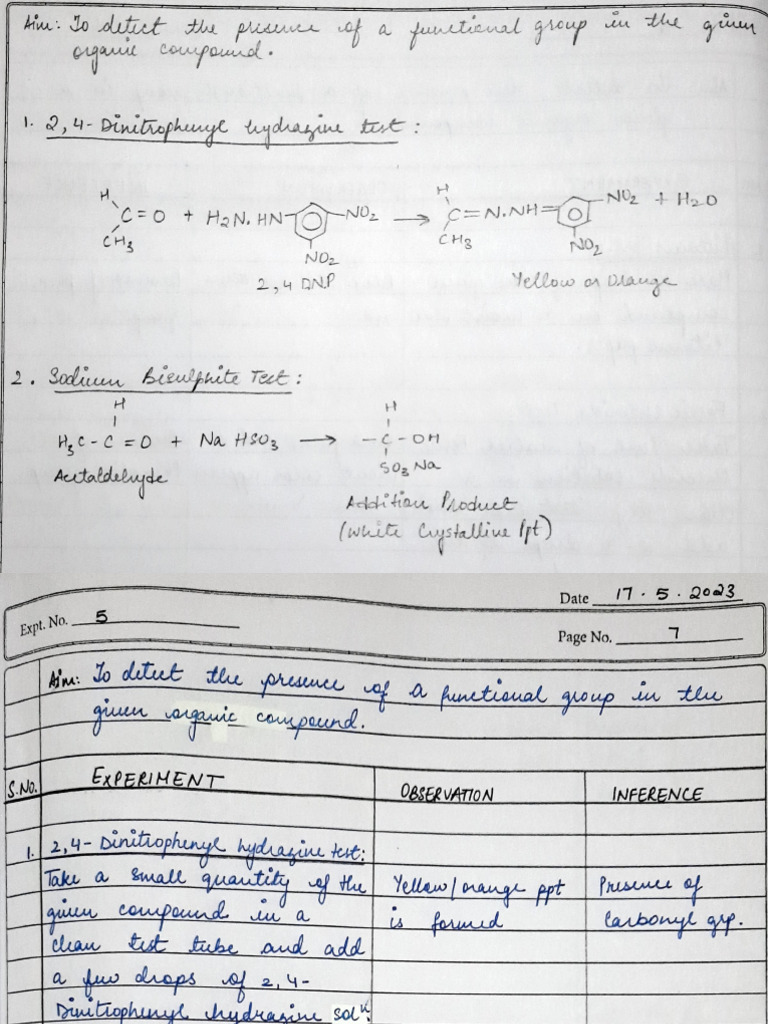 Aim: To detect the presence of a functional group in the given
organic compound.
1. 2,4-Dinitrophenyl hydrazine test :
H
C=O + H2N.HN NO2 → C=N.NH= NO2 + H2O
CH3
NO2
H
CH3
NO2
2,4 DNP
Yellow or Orange
2. Sodium Bisulphite Test :
H
H3C-C=O + NaHSO3 → -C-OH
H
SO3Na
Acetaldehyde
Addition Product
(White Crystalline Ppt)
Date 17.5.2023
Expt. No. 5
Page No. 7
Aim: To detect the presence of a functional group in the
given organic compound.
S.No. EXPERIMENT OBSERVATION INFERENCE
1. 2,4-Dinitrophenyl hydrazine test:
Take a small quantity of the Yellow/orange ppt Presence of
given compound in a is formed Carbonyl grp.
clean test tube and add
a few drops of 2,4-
Dinitrophenyl hydrazine solⁿ.